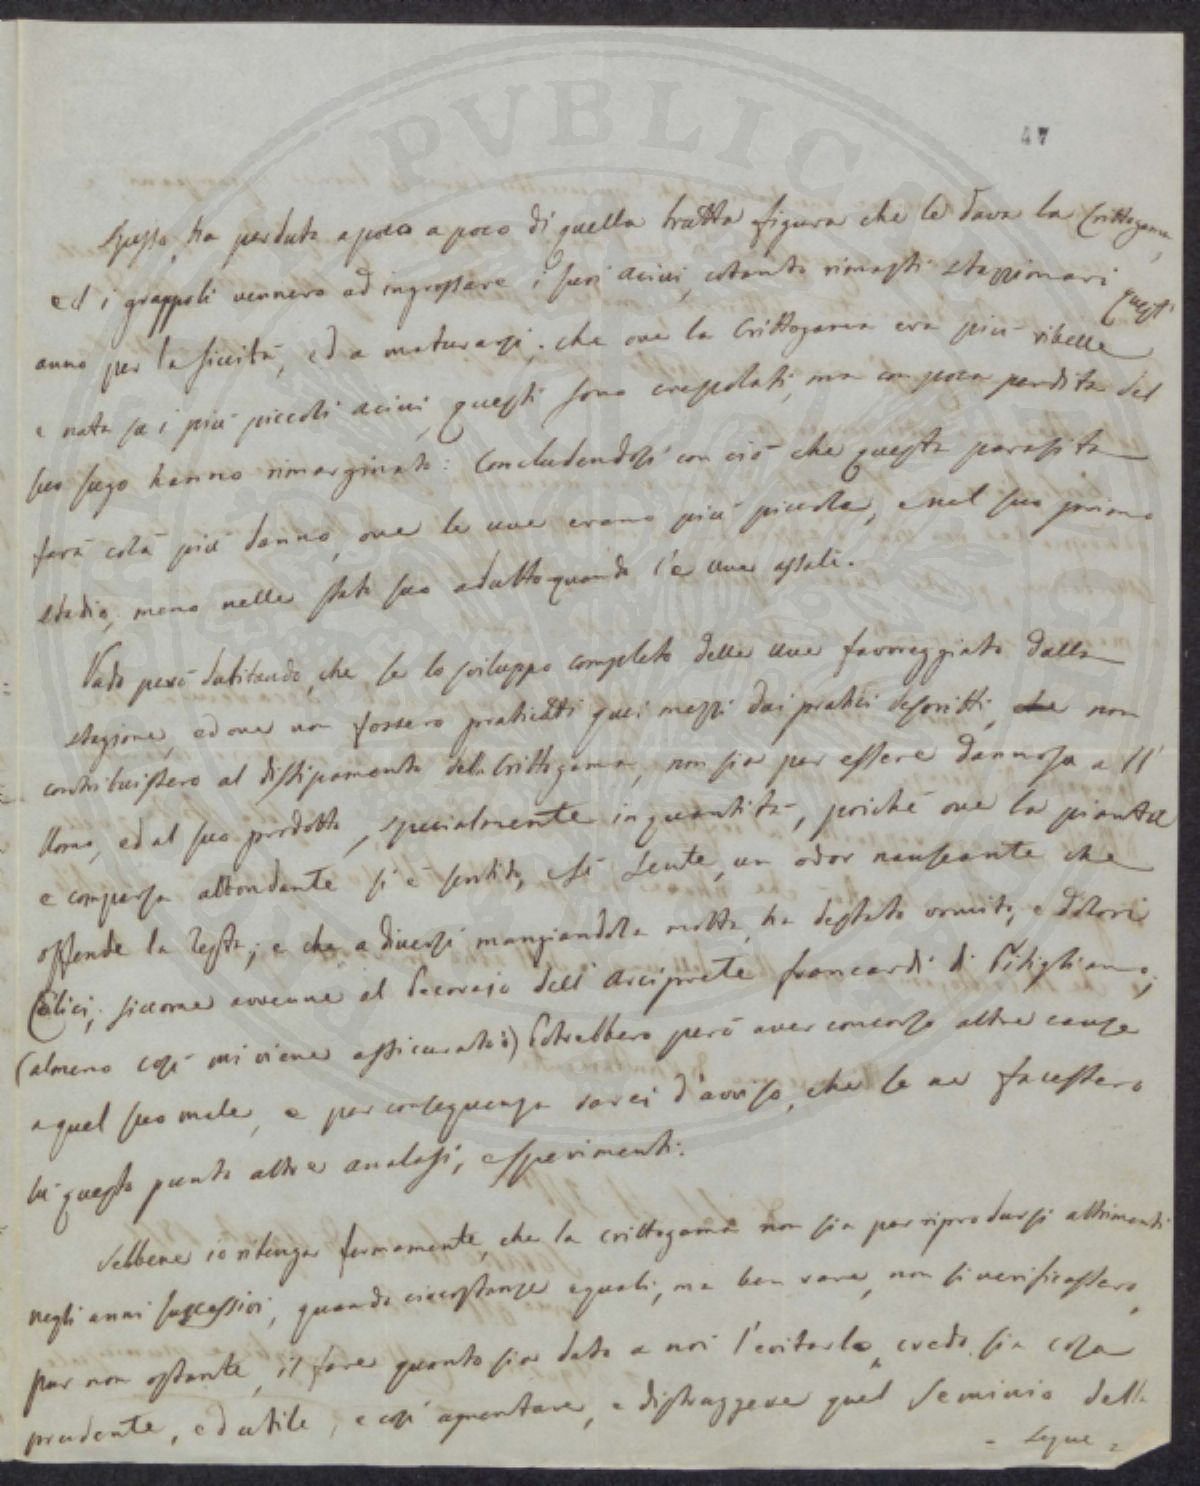 47
spesso, ha perduto a poco a poco di quella tratta figura che le dava la Crittogama,
ed i grappoli vennero ad ingrossare i suoi acini, cotanto rimasti stazionari quest'
anno per la siccità, ed a maturarsi; che ove la Crittogama era più ribelle
e nata su i più piccoli acini, questi sono crepolati, ma con poca perdita del
suo sugo hanno rimarginato: Concludendosi con ciò che questa parasita
farà colà più danno, ove le uve erano più piccole, e nel suo primo
stadio, meno nello stato suo adulto quando l'è uve assalì.
Vado però dubitando, che se lo sviluppo completo delle uve favoreggiato dalla
stagione, ed ove non fossero praticati quei mezzi dai pratici descritti, che non
contribuissero al dissipamento della Crittogama, non sia per essere dannosa all'
Uomo, ed al suo prodotto, specialmente in quantità, poichè ove la pianta
è comparsa abbondante si è sentito, e si sente, un odor nauseante che
offende la testa; e che a diversi mangiandola molta, ha destato vomito, e dolori
Colici; siccome avvenne al Pecorajo dell'Arciprete Francardi di Pitigliano;
(almeno così mi viene assicurato) Potrebbero però aver concorso altre cause
a quel suo male, e per conseguenza sarei d'avviso, che se ne facessero
su questo punto altre analasi, e sperimenti.
Sebbene io ritenga fermamente, che la crittogama non sia per riprodursi altrimenti
negli anni successivi, quando circostanze eguali, ma ben rare, non si verificassero,
pur non ostante, il fare quanto sia dato a noi l'evitarla, credo sia cosa
prudente, ed utile, e così aumentare, e distruggere quel seminio della
- Segue -
PVBLICA